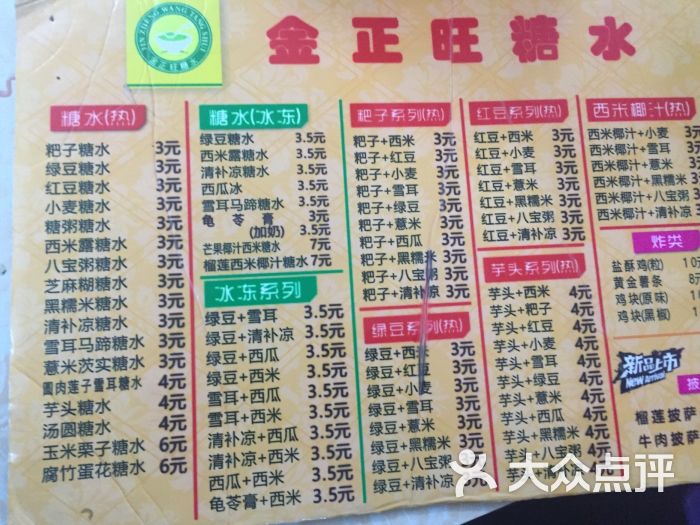 JIN ZHENG WANG TANG SHUI
金正旺糖水
金正旺糖水
糖水(热)
粑子糖水 3元
绿豆糖水 3元
红豆糖水 3元
小麦糖水 3元
糖粥糖水 3元
西米露糖水 3元
八宝粥糖水 3元
芝麻糊糖水 3元
黑糯米糖水 3元
清补凉糖水 3元
雪耳马蹄糖水 3元
薏米茨实糖水 3元
圆肉莲子雪耳糖水 4元
芋头糖水 4元
汤圆糖水 4元
玉米栗子糖水 6元
腐竹蛋花糖水 6元
糖水(冰冻)
绿豆糖水 3.5元
西米露糖水 3.5元
清补凉糖水 3.5元
西瓜冰 3.5元
雪耳马蹄糖水 3.5元
龟苓膏 3元
(加奶) 3.5元
芒果椰汁西米糖水 7元
榴莲西米椰汁糖水 7元
冰冻系列
绿豆+雪耳 3.5元
绿豆+清补凉 3.5元
绿豆+西瓜 3.5元
绿豆+西米 3.5元
雪耳+西瓜 3.5元
雪耳+西米 3.5元
清补凉+西瓜 3.5元
清补凉+西米 3.5元
西瓜+西米 3.5元
龟苓膏+西米 3.5元
粑子系列(热)
粑子+西米 3元
粑子+红豆 3元
粑子+小麦 3元
粑子+雪耳 3元
粑子+绿豆 3元
粑子+薏米 3元
粑子+西瓜 3元
粑子+黑糯米 3元
粑子+八宝粥 3元
粑子+清补凉 3元
绿豆系列(热)
绿豆+西米 3元
绿豆+红豆 3元
绿豆+小麦 3元
绿豆+雪耳 3元
绿豆+薏米 3元
绿豆+黑糯米 3元
绿豆+八宝粥
绿豆+清补凉
红豆系列(热)
红豆+西米 3元
红豆+小麦 3元
红豆+雪耳 3元
红豆+薏米 3元
红豆+黑糯米 3元
红豆+八宝粥 3元
红豆+清补凉 3元
芋头系列(热)
芋头+西米 4元
芋头+粑子 4元
芋头+红豆 4元
芋头+小麦 4元
芋头+雪耳 4元
芋头+绿豆 4元
芋头+薏米 4元
芋头+西瓜 4元
芋头+黑糯米 4元
芋头+八宝粥
芋头+清补凉
西米椰汁(热)
西米椰汁+小麦 3
西米椰汁+雪耳 3
西米椰汁+薏米 3
西米椰汁+黑糯米 3
西米椰汁+八宝粥 3
西米椰汁+清补凉 3
炸类
盐酥鸡(粒) 10元
黄金薯条 8元
鸡块(原味)
鸡块(黑椒)
新品上市
New Arrival
披
榴莲披萨
牛肉披萨
大众点评